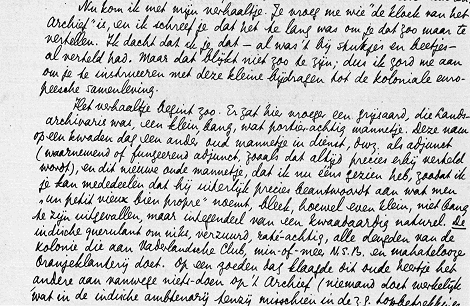 Nu kom ik met mijn verhaaltje. Je vroeg me wie "de kloek van het
Archief" is, en ik schreef je dat het te lang was om je dat zoo maar te
vertellen. Ik dacht dat ik je dat – al was 't bij stukjes en beetjes –
al verteld had. Maar dat blijkt niet zoo te zijn; dus ik zord me aan
om je te instrueeren met deze kleine bijdragen tot de koloniale euro-
peesche samenleving.
Het verhaaltje begint zoo. Er zat hier vroeger een grijsaard, die Lands-
archivaris was, een klein, bang, wat portier-achtig mannetje. Deze nam
op een kwaden dag een ander oud mannetje in dienst, d.w.z. als adjunct
(waarnemend of fungeerend adjunct, zooals dat altijd precies erbij verteld
wordt), en dit nieuwe oude mannetje, dat ik nu eens gezien heb, zoodat ik
je kan mededeelen dat hij uiterlijk precies beantwoordt aan wat men
"un petit vieux bien propre" noemt, bleek, hoewel even klein, niet bang
te zijn uitgevallen, maar integendeel van een kwaadaardig naturel. De
indische querulant om niks, verzuurd, raté-achtig, alle deugden van de
kolonie die aan Vaderlandsche Club, min-of-mee N.S.B. en
Oranjeklanterij doet. Op een goeden dag klaagde dit oude heertje het
andere aan vanwege niets-doen op 't Archief (niemand doet werkelijk
wat in de indische ambtenarij tenzij misschien in de z.g.